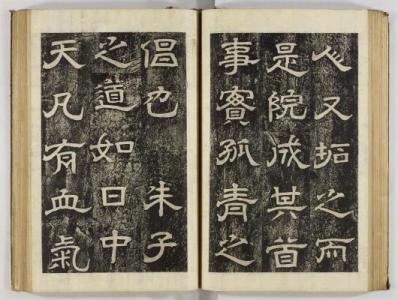 心又拓之而
是院成其首
事實孤青之
倡也 朱子
之道如日中
天凡有血氣